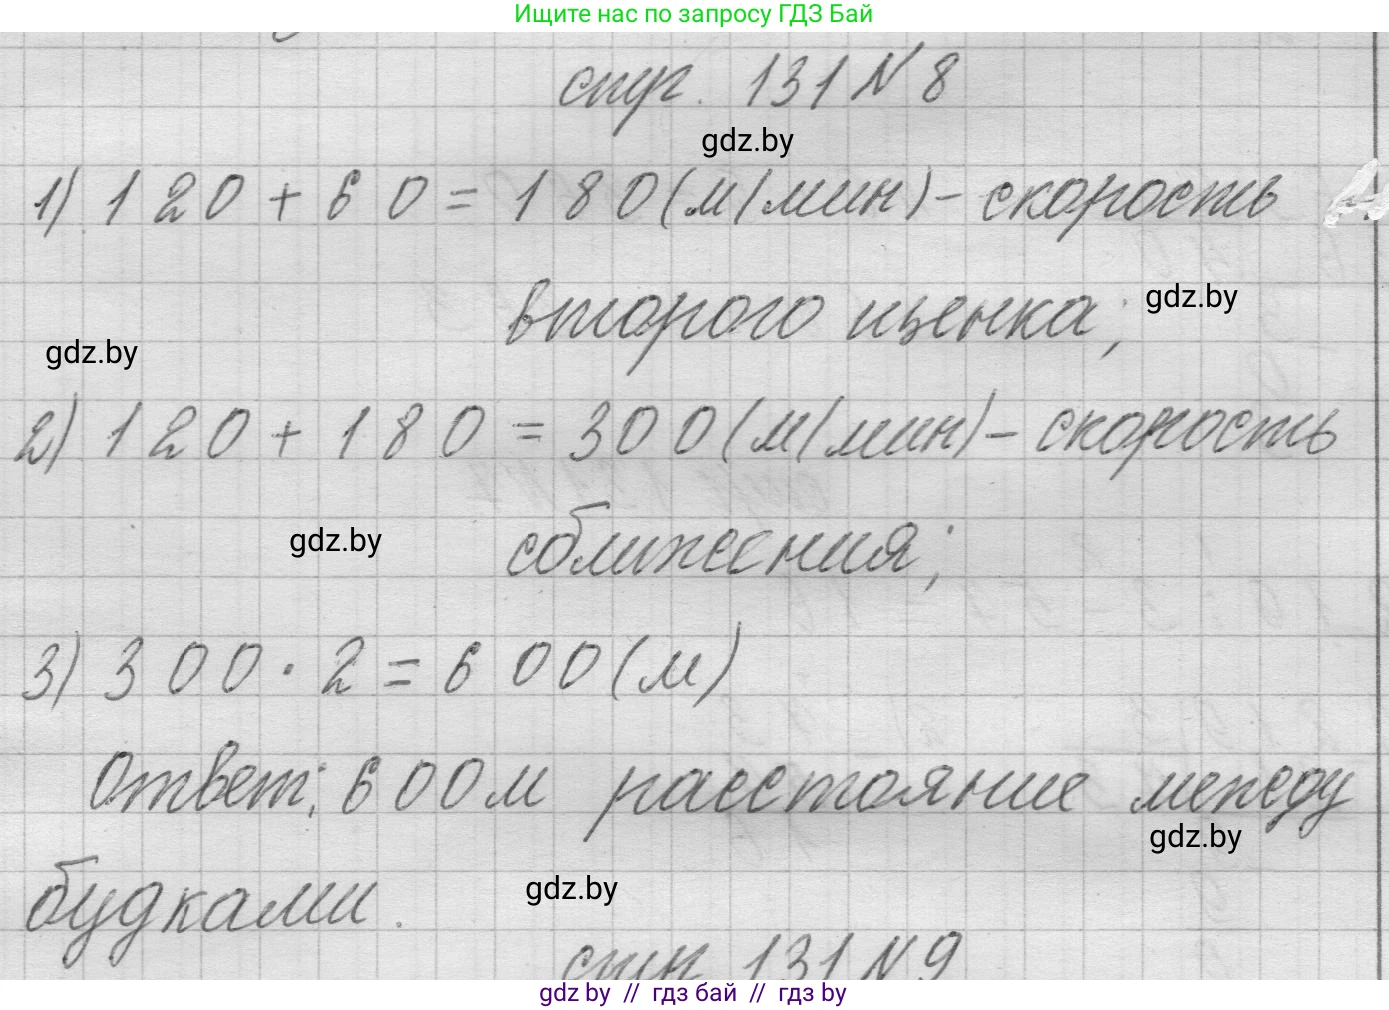 Ищите нас по запросу ГДЗ Бай
стр. 131 № 8
gdz.by
1) 120 + 60 = 180 (м/мин) - скорость
второго щенка;
gdz.by
gdz.by
2) 120 + 180 = 300 (м/мин) - скорость
gdz.by
сближения;
3) 300 · 2 = 600 (м)
Ответ: 600 м расстояние между
gdz.by
будками.
gdz.by
стр. 131 № 9
gdz by // гдз бай // гдз by